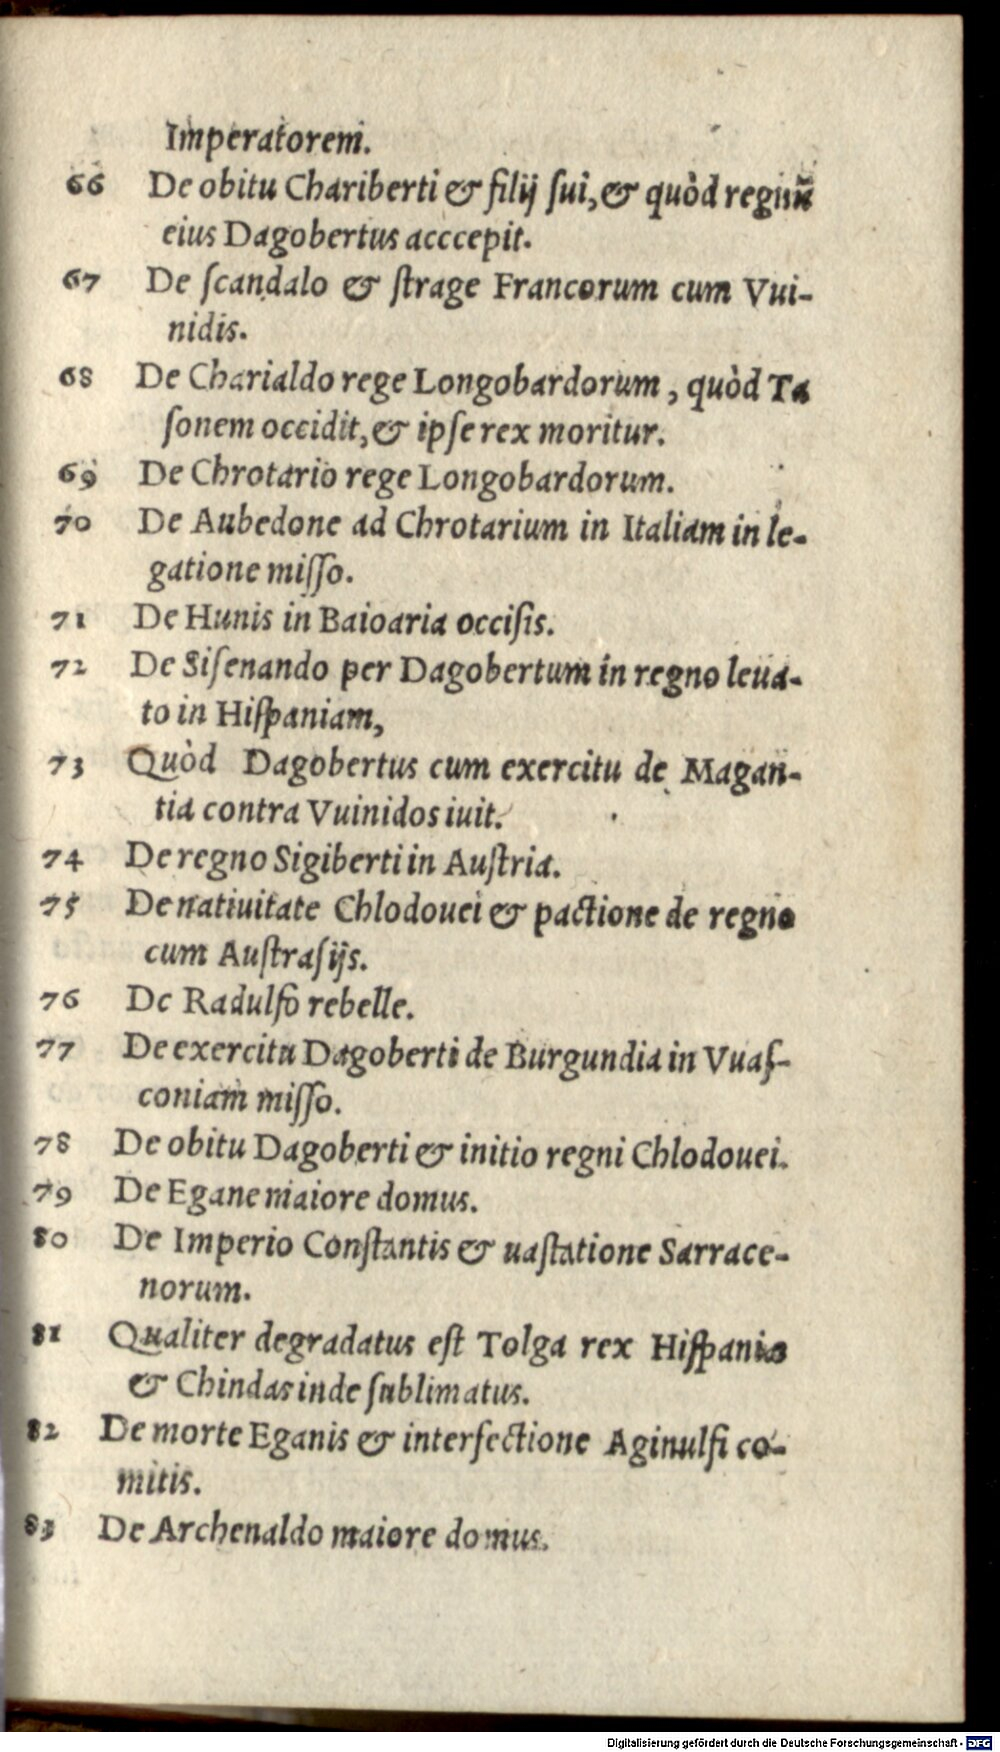 Imperatorem.
66 De obitu Chariberti & filij ſui, & quòd regnũ
eius Dagobertus acccepit.
67 De ſcandalo & ſtrage Francorum cum Vui-
nidis.
68 De Charialdo rege Longobardorum, quòd Ta
ſonem occidit, & ipſe rex moritur.
69 De Chrotario rege Longobardorum.
70 De Aubedone ad Chrotarium in Italiam in le-
gatione miſſo.
71 De Hunis in Baioaria occiſis.
72 De Siſenando per Dagobertum in regno leua-
to in Hiſpaniam,
73 Quòd Dagobertus cum exercitu de Magan-
tia contra Vuinidos iuit.
74 De regno Sigiberti in Auſtria.
75 De natiuitate Chlodouei & pactione de regno
cum Auſtraſijs.
76 De Radulfo rebelle.
77 De exercitu Dagoberti de Burgundia in Vuaſ-
coniam miſſo.
78 De obitu Dagoberti & initio regni Chlodouei.
79 De Egane maiore domus.
80 De Imperio Conſtantis & uaſtatione Sarrace-
norum.
81 Qualiter degradatus eſt Tolga rex Hiſpanię
& Chindas inde ſublimatus.
82 De morte Eganis & interfectione Aginulfi co-
mitis.
83 De Archenaldo maiore domus.
Digitalisierung gefördert durch die Deutsche Forschungsgemeinschaft - DFG